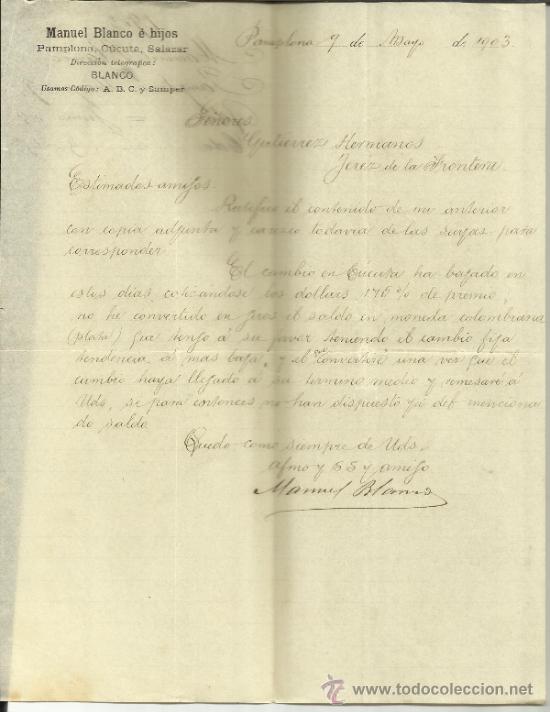 Manuel Blanco é hijos
Pamplona, Cúcuta, Salazar
Dirección telegráfica:
BLANCO
Usamos Código: A. B. C. y Sumper
Pamplona 9 de Mayo de 1903
Señores
Gutierrez Hermanos
Jerez de la Frontera
Estimados amigos.
Ratifico el contenido de mi anterior
con copia adjunta y carezco todavia de las suyas para
corresponder
El cambio en Cúcuta ha bajado en
estos días, cotizandose los dollars 175 % de premio,
no hé convertido en giros el saldo en moneda colombiana
(plata) que tengo á su favor teniendo el cambio fija
tendencia á mas baja, y el que convertiré una vez que el
cambio haya llegado á su termino medio y remesaré á
Uds, se para entonces no han dispuesto ya del menciona
do saldo
Quedo como siempre de Uds.
afmo y S S y amigo
Manuel Blanco
www.todocoleccion.net